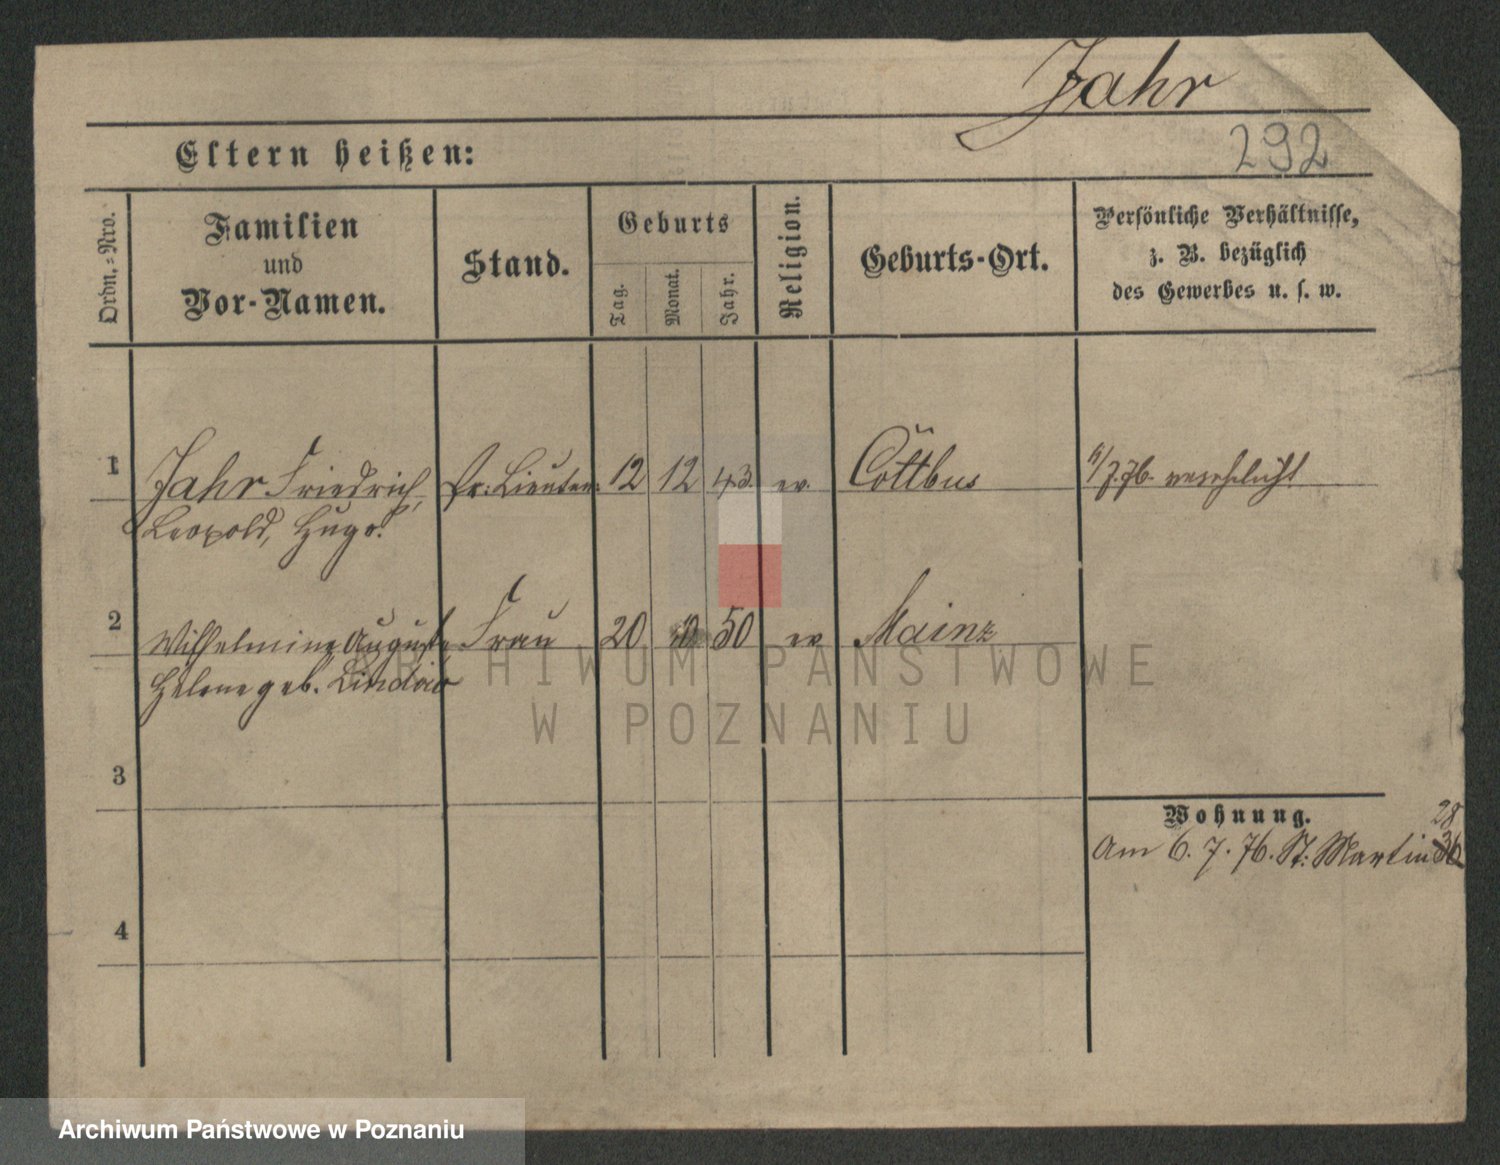 Jahr
292
Eltern heißen:
Ordn.-Nro.
Familien
und
Vor-Namen.
Stand.
Geburts
Tag.
Monat.
Jahr.
Religion.
Geburts-Ort.
Persönliche Verhältnisse,
z. B. bezüglich
des Gewerbes u. s. w.
1 Jahr Friedrich, Pr: Lieuten: 12 12 43 ev. Cottbus /7.76. verehelicht
Leopold, Hugo.
2 Wilhelmine Auguste Frau 20 50 ev Mainz
Helene geb.
3
4
Wohnung.
28
Am 6. 7. 76. St: Martin 36
ARCHIWUM PAŃSTWOWE
W POZNANIU
Archiwum Państwowe w Poznaniu